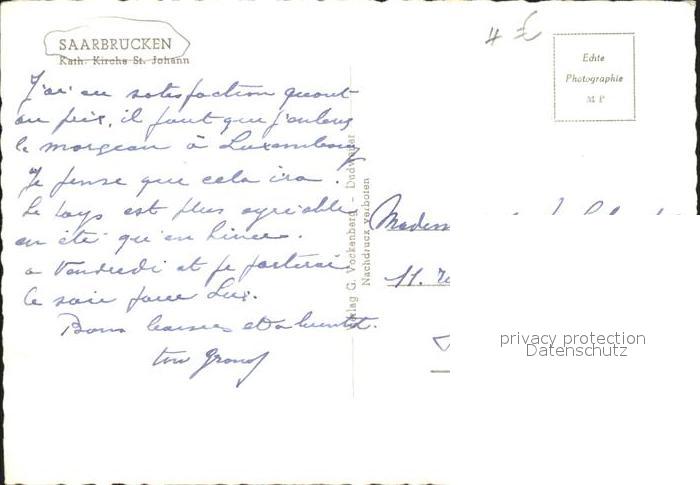 SAARBRÜCKEN
Kath. Kirche St. Johann
4 £
Echte
Photographie
M P
J'ai eu satisfaction quant
au prix, il faut que j'enlève
le morceau à Luxembourg
Je pense que cela ira !
Le pays est plus agréable
en été qu'en hiver.
a Vendredi et je partirai
le soir pour Lux.
Bons baisers et a bientôt.
ton
Verlag G. Vockenberg - Dudweiler
Nachdruck verboten
11.
privacy protection
Datenschutz